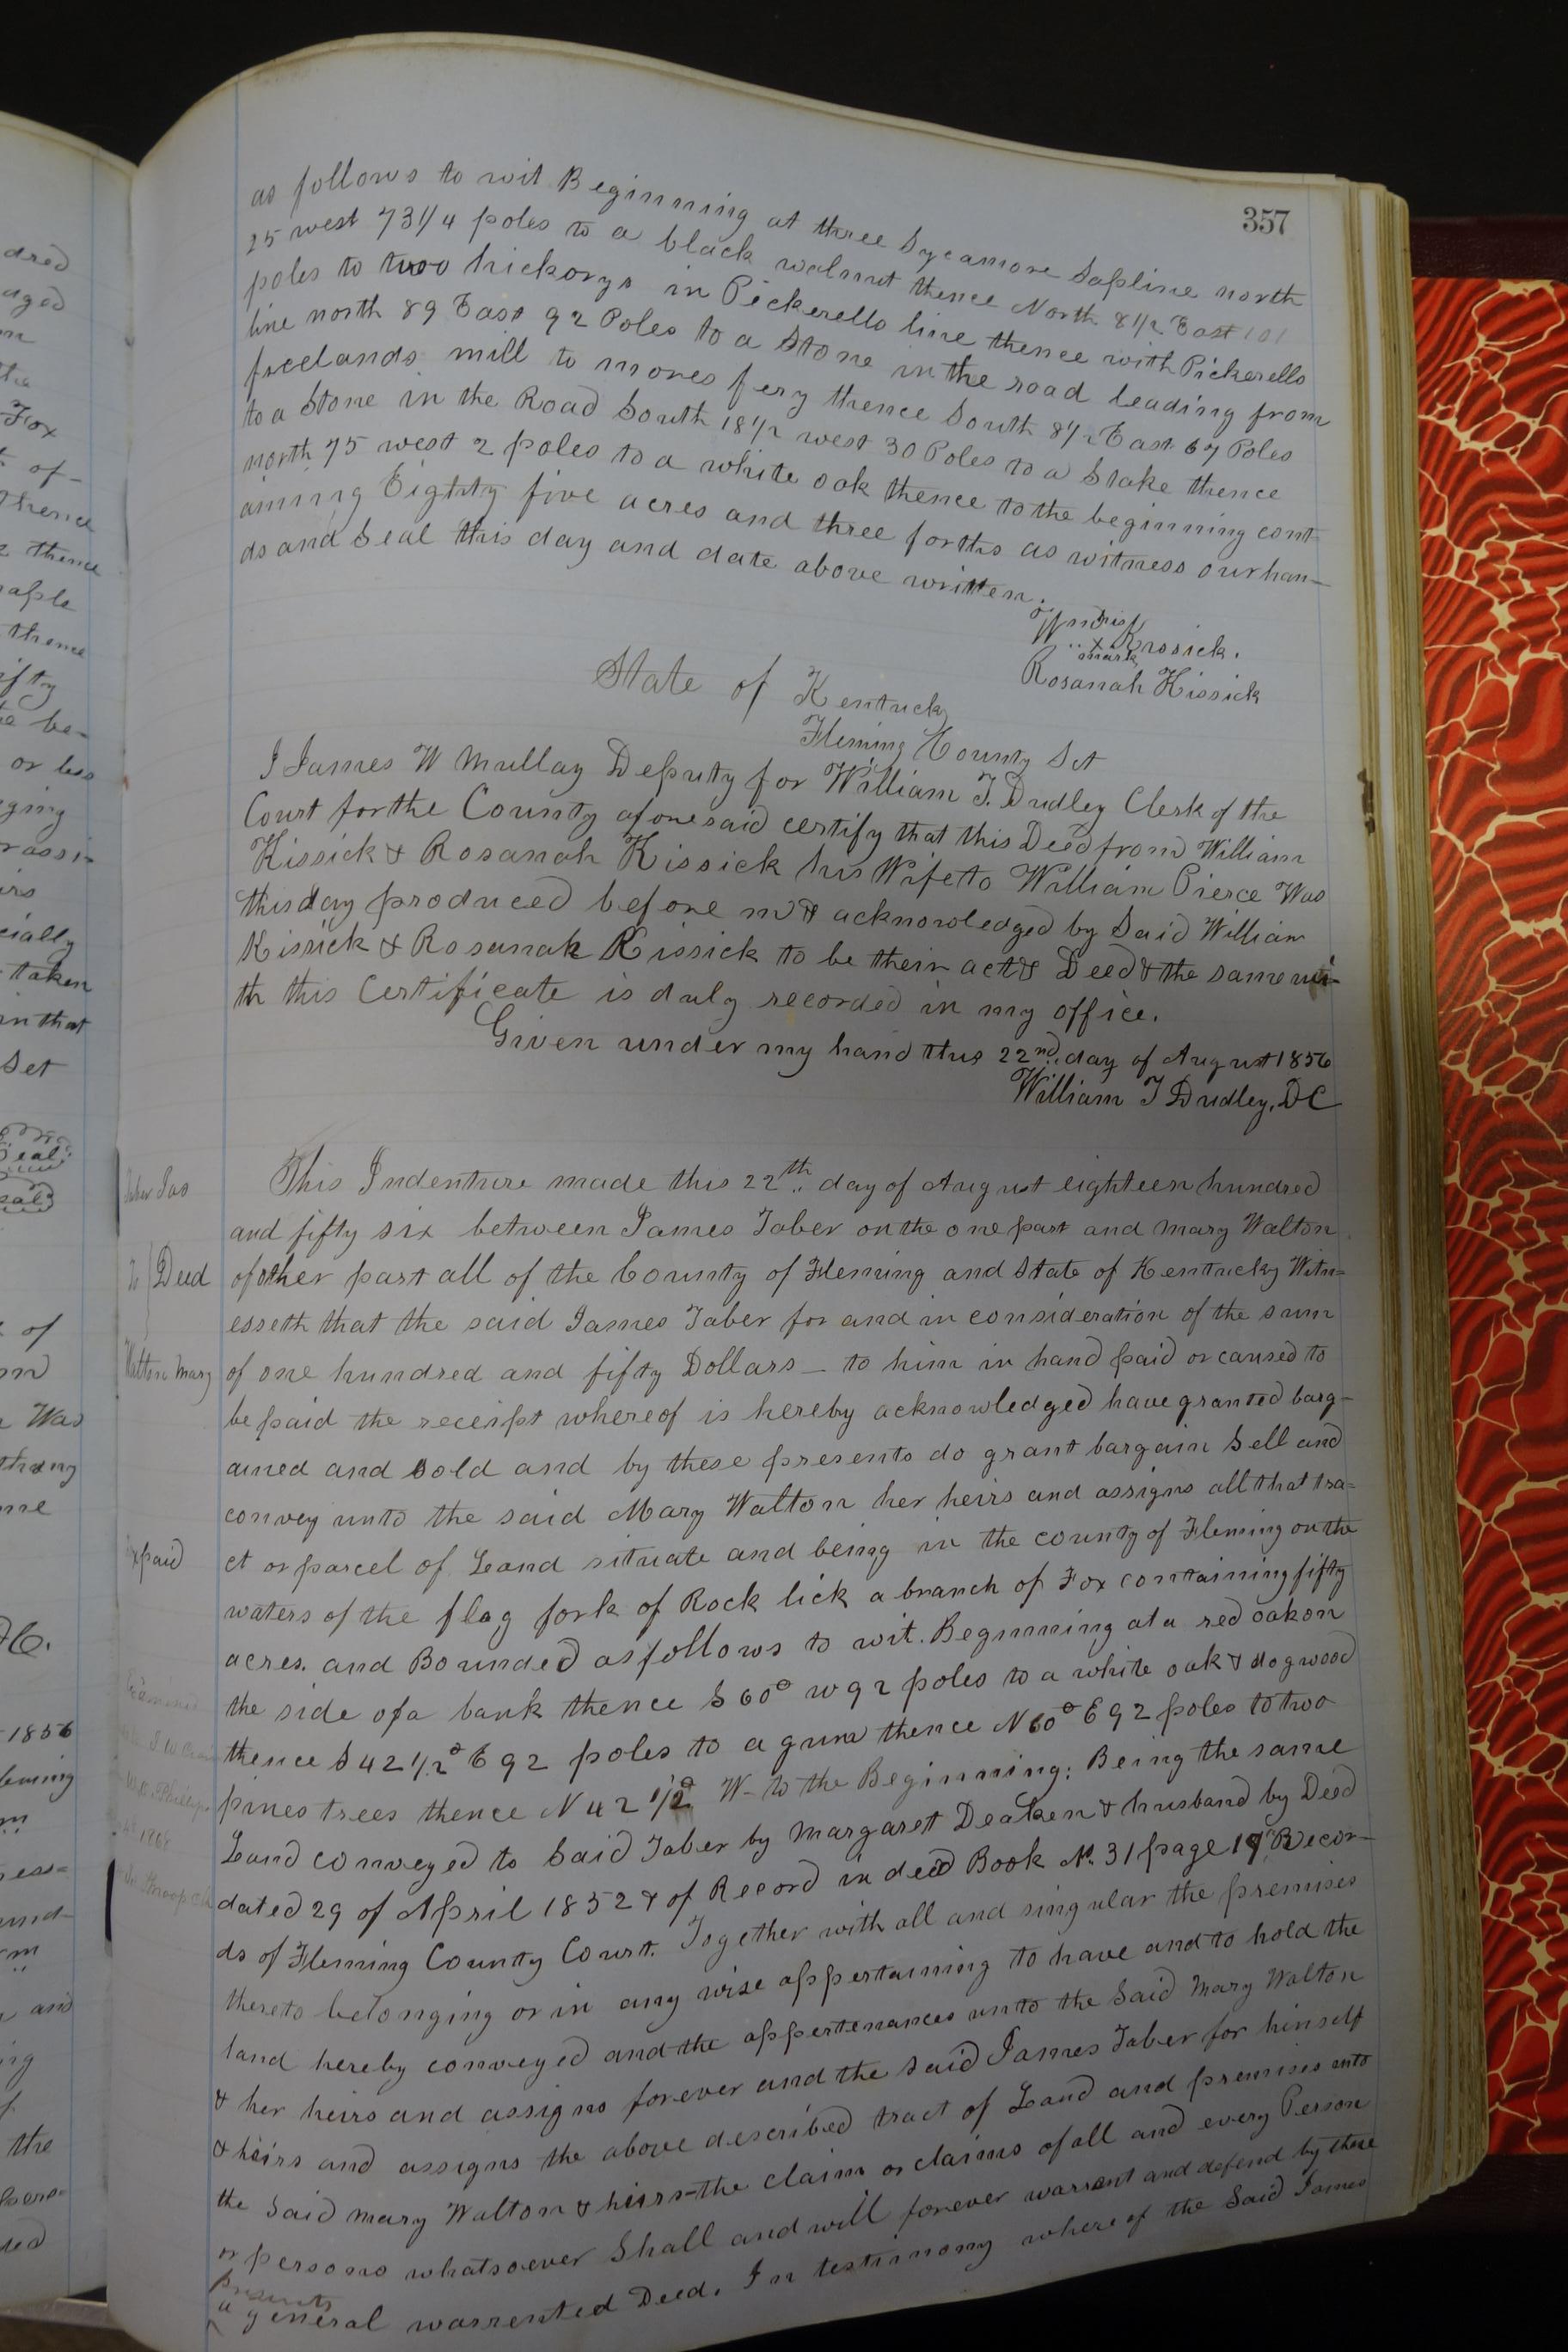 357
as follows to wit Beginning at three Sycamore Sapline north
25 west 73 1/4 poles to a black walnut thence North 8 1/2 East 101
poles to two hickorys in Pickerells line thence with Pickerells
line north 89 East 92 Poles to a Stone in the road leading from
freelands mill to mores fery thence South 8 1/2 East 67 Poles
to a Stone in the Road South 18 1/2 west 30 Poles to a Stake thence
north 75 west 2 poles to a white oak thence to the beginning cont
aining Eighty five acres and three forths as witness our han-
ds and Seal this day and date above written.
his
Wm x Kissick.
mark
Rosanah Kissick
State of Kentucky
Fleming County Sct
I James W Mullay Deputy for William T. Dudley Clerk of the
Court for the County aforesaid certify that this Deed from William
Kissick & Rosanah Kissick his Wife to William Pierce Was
this day produced before me & acknowledged by Said William
Kissick & Rosanah Kissick to be their act & Deed & the same wi-
th this Certificate is duly recorded in my office.
Given under my hand this 22nd day of August 1856
William T Dudley, DC
Taber Jas
To } Deed
Walton Mary
Tx paid
This Indenture made this 22th day of August eighteen hundred
and fifty six between James Taber on the one part and Mary Walton
of other part all of the County of Fleming and State of Kentucky Witn=
esseth that the said James Taber for and in consideration of the sum
of one hundred and fifty Dollars - to him in hand paid or caused to
be paid the receipt whereof is hereby acknowledged have granted barg-
ained and Sold and by these presents do grant bargain Sell and
convey unto the said Mary Walton her heirs and assigns all that tra=
ct or parcel of Land situate and being in the county of Fleming on the
waters of the flag fork of Rock lick a branch of Fox containing fifty
acres. and Bounded as follows to wit. Beginning at a red oak on
the side of a bank thence S 60° W 92 poles to a white oak & dogwood
thence S 42 1/2° E 92 poles to a gum thence N 60° E 92 poles to two
pines trees thence N 42 1/2° W- to the Beginning; Being the same
Land conveyed to Said Taber by Margarett Deaken & husband by Deed
dated 29 of April 1852 & of Record in deed Book No. 31 page 19 Recor-
ds of Fleming County Court. Together with all and singular the premises
thereto belonging or in any wise appertaining to have and to hold the
land hereby conveyed and the appertenances unto the Said Mary Walton
& her heirs and assigns forever and the said James Taber for himself
& heirs and assigns the above described tract of Land and premises unto
the Said Mary Walton & heirs-the claim or claims of all and every Person
or persons whatsoever Shall and will forever warrant and defend by these
presents
a general warrented Deed. In testimony where of the Said James